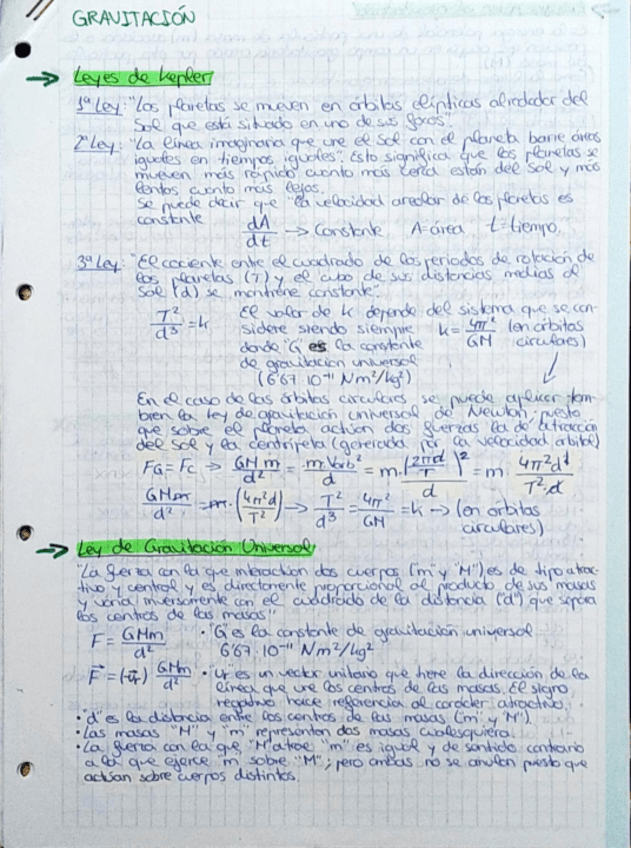 GRAVITACIÓN
→ Leyes de Kepler
1ª Ley: "Los planetas se mueven en órbitas elípticas alrededor del
Sol que está situado en uno de sus focos".
2ª Ley: "La línea imaginaria que une el Sol con el planeta barre áreas
iguales en tiempos iguales". Esto significa que los planetas se
mueven más rápido cuanto más cerca están del Sol y más
lentos cuanto más lejos.
Se puede decir que "la velocidad areolar de los planetas es
constante
dA/dt → Constante A=área t=tiempo.
3ª Ley: "El cociente entre el cuadrado de los periodos de rotación de
los planetas (T) y el cubo de sus distancias medias al
Sol (d) se mantiene constante".
T²/d³ = k
El valor de k depende del sistema que se con-
sidere siendo siempre k = 4π²/GM (en órbitas circulares)
donde "G" es la constante
de gravitación universal
(6'67·10⁻¹¹ Nm²/kg²)
En el caso de las órbitas circulares se puede aplicar tam-
bien la Ley de gravitación universal de Newton; puesto
que sobre el planeta actúan dos fuerzas la de atracción
del Sol y la centrípeta (generada por la velocidad orbital)
FG = Fc → GMm/d² = m·Vorb²/d = m·(2πd/T)²/d = m·4π²d²/T²·d
GMm/d² = m·(4π²d/T²) → T²/d³ = 4π²/GM = k → (en órbitas
circulares)
→ Ley de Gravitación Universal
"La fuerza con la que interactúan dos cuerpos ("m" y "M") es de tipo atrac-
tivo y central y es directamente proporcional al producto de sus masas
y varía inversamente con el cuadrado de la distancia ("d") que separa
los centros de las masas"
F = GMm/d² · "G" es la constante de gravitación universal
6'67·10⁻¹¹ Nm²/kg²
F⃗ = (-u⃗r) GMm/d² · "ur" es un vector unitario que tiene la dirección de la
línea que une los centros de las masas. El signo
negativo hace referencia al carácter atractivo.
· "d" es la distancia entre los centros de las masas ("m" y "M").
· Las masas "M" y "m" representan dos masas cualesquiera.
· La fuerza con la que "M" atrae "m" es igual y de sentido contrario
a la que ejerce "m" sobre "M"; pero ambas no se anulan puesto que
actúan sobre cuerpos distintos.